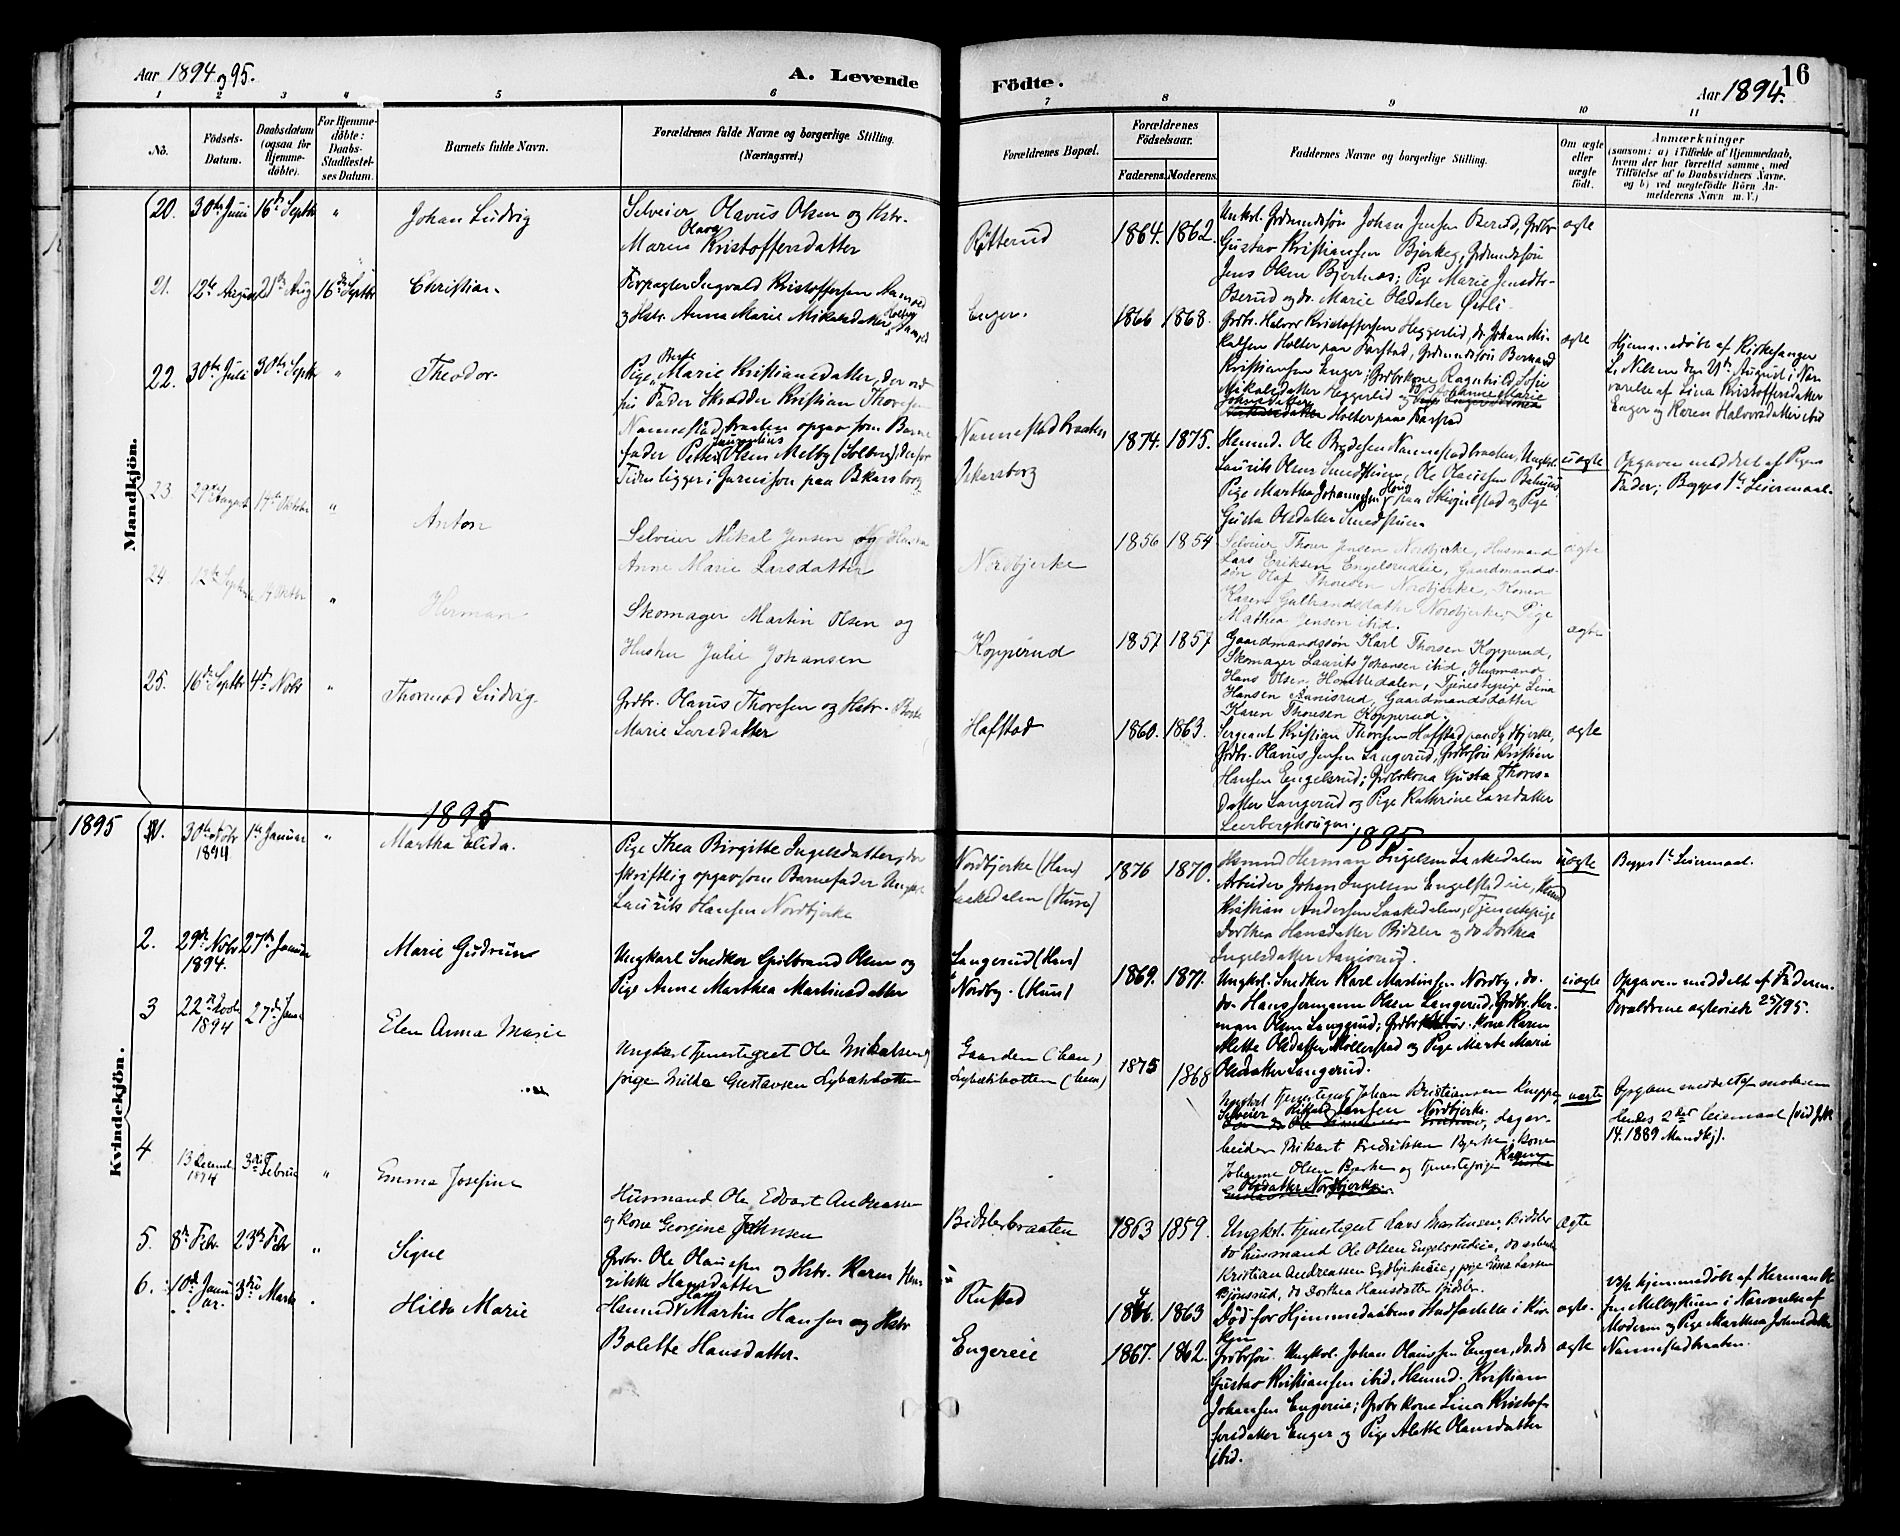 Aar 1894 og 95.
A. Levende
Födte.
16
Aar 1894.
1 2 3 4 5 6 7 8 9 10 11
No.
Födsels-
Datum.
Daabsdatum
(ogsaa for
Hjemme-
döbte).
For Hjemme-
döbte:
Daabs-
Stadfæstel-
ses Datum.
Barnets fulde Navn.
Forældrenes fulde Navne og borgerlige Stilling.
(Næringsvei.)
Forældrenes Bopæl.
Forældrenes
Födselsaar.
Faderens. Moderens.
Faddernes Navne og borgerlige Stilling.
Om ægte
eller
uægte
födt.
Anmærkninger
(saasom: a) i Tilfælde af Hjemmedaab,
hvem der har forrettet samme, med
Tilföielse af to Daabsvidners Navne,
og b) ved uægtefödte Börn An-
melderens Navn m. V.)
Mandkjön.
20. 30te Juni 16de Septbr " Johan Ludvig
Selveier Olavus Olsen og Hstr.
Olava
Maren Kristoffersdatter
Røtterud 1864. 1862.
Unkrl. Grdmndssøn Johan Jensen Oserud, Grdbr
Gustav Kristiansen Bjerkeg, Grdmndssøn
Jens Olsen Bjertnæs; Pige Marie Jensdtr.
Oserud og do. Marie Olsdatter Østli.
ægte
21. 12te August 21de Aug 16de Septbr Christian.
Forpagter Ingvald Kristoffersen Aamod
og Hstr. Anna Marie Mikalsdatter
Enger. 1866 1868.
Grdbr. Halvor Kristoffersen Heggerlid, do. Johan Mi-
kalsen Holter paa Farstad, Grdmndssøn Bernard
Kristiansen Enger; Grdbrkone Ragnhild Sofie
Mikalsdatter Heggerlid og Johanne Marie
Holter paa Farstad
ægte
Hjemmedøbt af Kirkesanger
L. Nilsen den 21de August i Nær
værelse af Lina Kristoffersdatter
Enger og Karen Halvorsdatter ibid
22. 30te Juli 30te Septbr " Theodor.
Berte
Pige Marie Kristiansdatter, der ved
sin Fader Skrædder Kristian Thoresen
Nannestadbraaten opgav som Barne
fader Petter Olsen Melby (Solberg), der for
Tiden ligger i Garnison paa Oskarsborg
Nannestadbraaten
Oskarsborg
1874. 1875.
Hsmnd. Ole Brydesen Nannestadbraaten, Ungkrl.
Laurits Olsen Smedstuen, Ole Olausen Bahuus,
Pige Martha Johannesen Houg paa Skingelstad og Pige
Gusta Olsdatter Smedstuen.
uægte
Opgaven meddelt af Pigens
Fader; Begges 1te Leiermaal.
23 29de August 14de Oktober " Anton
Selveier Mikal Jensen og Hustru
Anne Marie Larsdatter
Nordbjerke 1856 1854
Selveier Thorer Jensen Nordbjerke, Husmand
Lars Eriksen Engelsrudeie, Gaardmands-
søn Olaf Thoresen Nordbjerke, Konen
Karen Gulbrandsdatter Nordbjerke, Pige
Mathea Jensen ibid.
ægte
24. 12te Septbr 14 Oktbr " Herman
Skomager Martin Olsen og
Hustru Julie Johansen
Kopperud 1857 1857
Gaardmandssøn Karl Thorsen Kopperud,
Skomager Laurits Johansen ibid, Husmand
Hans Olsen Homledalen, Tjenestepige Lina
Hansen Aanisrud, Gaardmandsdatter
Karen Thoresen Kopperud.
ægte
25. 16de Septbr 4de Nobr " Thormod Ludvig.
Grdbr. Olavus Thoresen og Hstr.
Marie Larsdatter
Hafstad 1860. 1863.
Sergeant Kristian Thoresen Hafstad paa Sydbjerke,
Grdbr. Olavus Jensen Langerud, Grdbrsøn Kristian
Hansen Engelsrud; Grdbrkona Gusta Thores-
datter Langerud og Pige Kathrine Larsdatter
Leerberghougen.
ægte
1895 1895 1895
Kvindekjön.
1. 30te Nobr 1te Januar " Martha Elida.
1894
Pige Thea Birgitte Ingelsdatter, der
skriftlig opgav som Barnefader Ungk.
Laurits Hansen Nordbjerke
Nordbjerke (Han)
Laskedalen (Hun)
1876 1870.
Hsmnd Herman Ingelsen Laskedalen
Arbeider Johan Ingelsen Engelstadeie, Hsmd
Kristian Andersen Laskedalen; Tjenestepige
Dorthea Hansdatter Bidsler og do Dorthea
Ingelsdatter Aanisrud.
uægte
Begges 1te Leiermaal.
2. 29de Nobr 27de Januar Marie Gudrun
1894.
Ungkarl Snedker Gulbrand Olsen og
Pige Anne Marthea Martinsdatter
Langerud (Han)
Nordby. (Hun)
1869. 1871.
Ungkrl. Snedker Karl Martinsen Nordby, do.
do. Hans Jermann Olsen Langerud, Grdbr. Her-
man Olsen Langerud; Grdbr. kone Karen
Alette Olsdatter Møllerstad og Pige Marte Marie
Olsdatter Langerud.
uægte
Opgaven meddelt af Faderen.
Forældrene ægteviede 25/1 95.
3 22de Oktbr 27de Jan. Elen Anna Marie
1894
Ungkarl tjenestegut Ole Mikalsen,
pige Milda Gustavsen Lybækbotten
Gaarden (han)
Lybækbotten (hun)
1875 1868
Ungkrl tjenestegut Johan Kristiansen Kneppe,
Selveier Rikard Jensen Nordbjerke, dagar-
beider Rikart Fredriksen Bjerke, kone
Johanne Olsen Bjerke og tjenestepige Karen
Olsdatter Nordbjerke.
uægte
Opgave meddelt af moderen
Hendes 2det leiermaal (vid folk
14. 1889 Mandkj).
4 13 Decembr 3die Februar " Emma Josefine
1894
Husmand Ole Edvart Andreassen
og Kone Georgine Johnsen
Bidslerbraaten 1863 1859.
Ungkrl. tjenestegut Lars Martinsen Bidsler
do husmand Ole Olsen Engelsrudeie, do arbeid
Kristian Andreassen Sydbjerkeeie, pige Lina Larsen
Bjørnsrud, do Dorthea Hansdatter Bidsler.
ægte
5. 8de Febr. 23de Febr " Signe
Grdbr. Ole Olaussen og Hstr. Karen Hen
rikke Hansdatter
Rustad 1864. 1863
Død før Hjemmedaabens Stadfæstelse i Kir-
ken
ægte.
23/2 hjemmedøbt af Herman Ol
sen Melbystuen i Nærværelse af
Moderen og Pige Marthea Johnsdatter
Nannestadbraaten.
6. 10de Janu 3die Marts " Hilda Marie
ar.
Hsmnd Martin Hansen og Hstr
Bolette Hansdatter.
Engereie 1867. 1862.
Grdbrsøn. Ungkrl. Johan Olaussen Enger, do. do
Gustav Kristiansen ibid, Hsmnd. Kristian
Johansen Engereie; Grdbrkone Lina Kristof-
fersdatter Enger og Pige Alette Olausdatter
ibid.
ægte